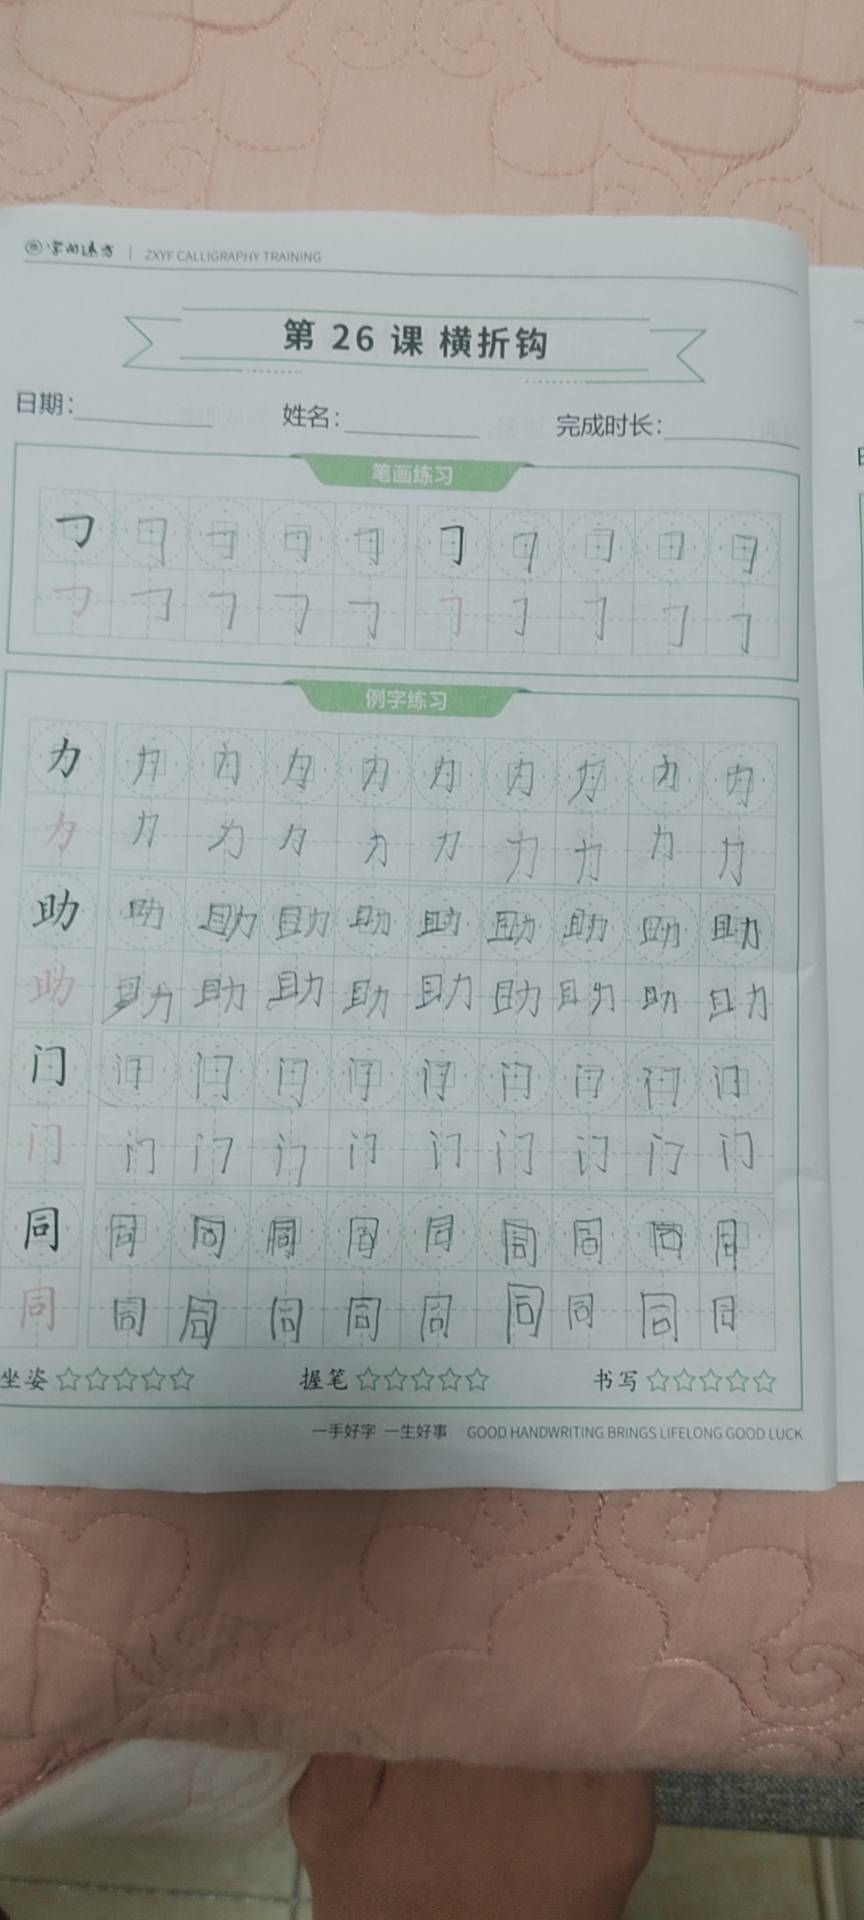 字的远方 | ZXYF CALLIGRAPHY TRAINING
第 26 课 横折钩
日期: 姓名: 完成时长:
笔画练习
例字练习
力 力 力 力 力 力 力 力 力 力
力 力 力 力 力 力 力 力 力 力
助 助 助 助 助 助 助 助 助 助
助 助 助 助 助 助 助 助 助 助
门 门 门 门 门 门 门 门 门 门
门 门 门 门 门 门 门 门 门 门
同 同 同 同 同 同 同 同 同 同
同 同 同 同 同 同 同 同 同 同
坐姿☆☆☆☆☆ 握笔☆☆☆☆☆ 书写☆☆☆☆☆
一手好字 一生好事 GOOD HANDWRITING BRINGS LIFELONG GOOD LUCK